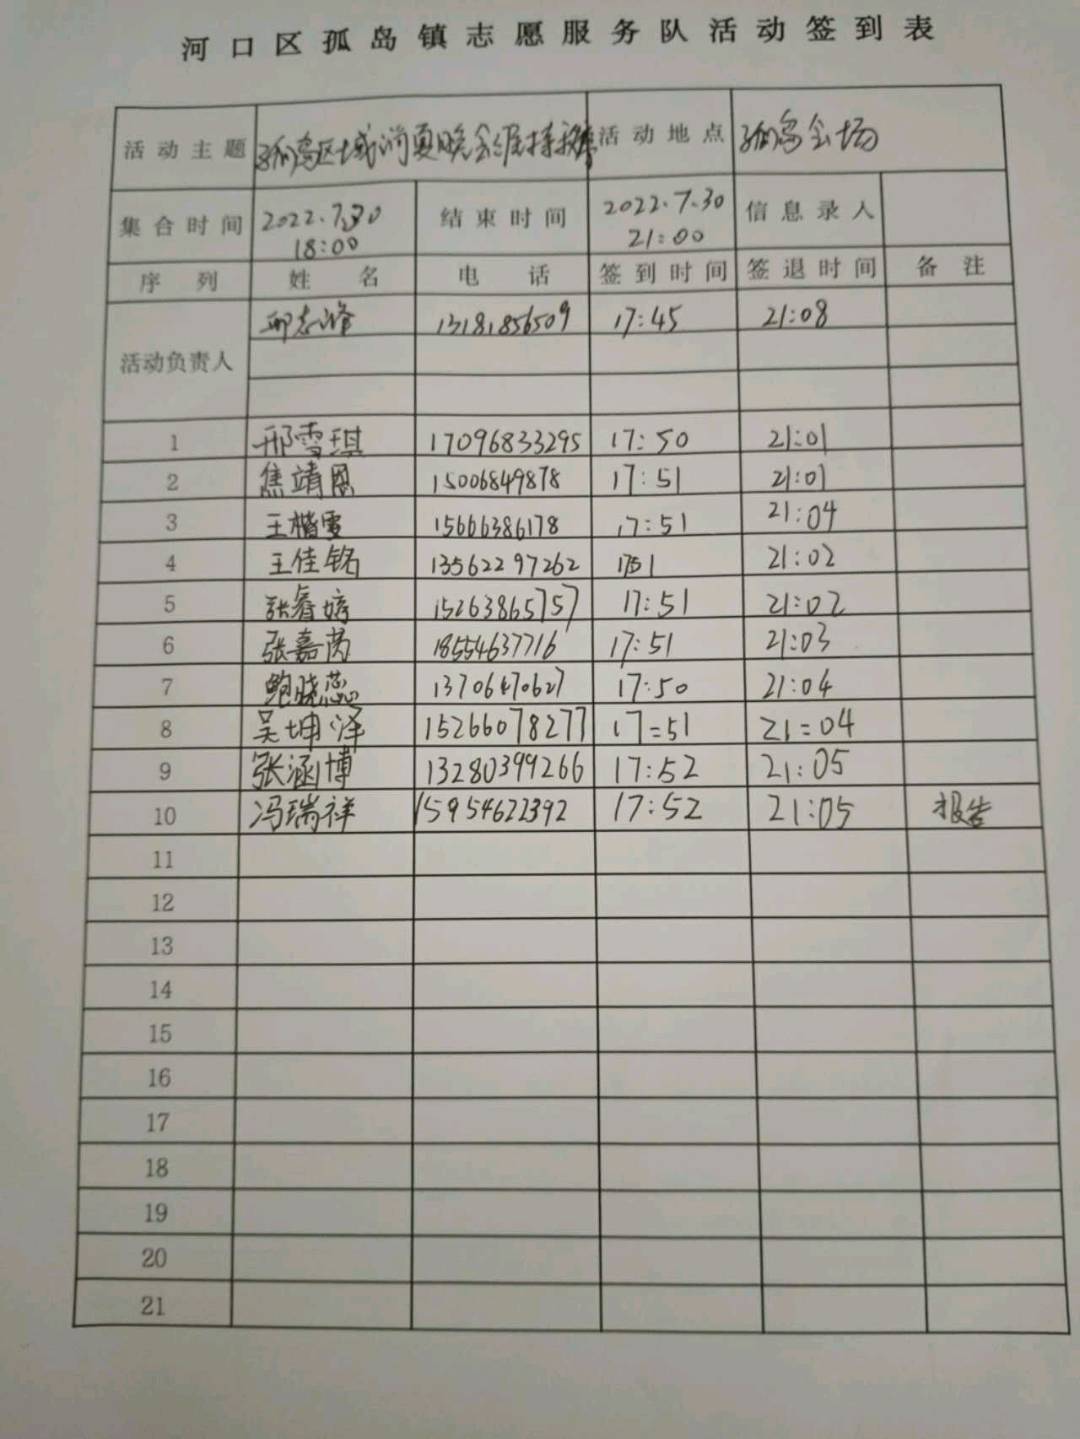 河口区孤岛镇志愿服务队活动签到表
活动主题 孤岛区域消夏晚会维持秩序 活动地点 孤岛会场
集合时间 2022.7.30 18:00 结束时间 2022.7.30 21:00 信息录入
序列 姓名 电话 签到时间 签退时间 备注
活动负责人 邢志峰 13181856509 17:45 21:08
1 邢雪琪 17096833295 17:50 21:01
2 焦靖恩 15006849878 17:51 21:01
3 王楷雯 15666386178 17:51 21:04
4 王佳铭 13562297262 1751 21:02
5 张睿婷 15263865757 17:51 21:02
6 张嘉芮 18554637716 17:51 21:03
7 鲍晓蕊 13706470627 17:50 21:04
8 吴坤泽 15266078277 17:51 21:04
9 张涵博 13280399266 17:52 21:05
10 冯瑞祥 15954622392 17:52 21:05 报告
11
12
13
14
15
16
17
18
19
20
21